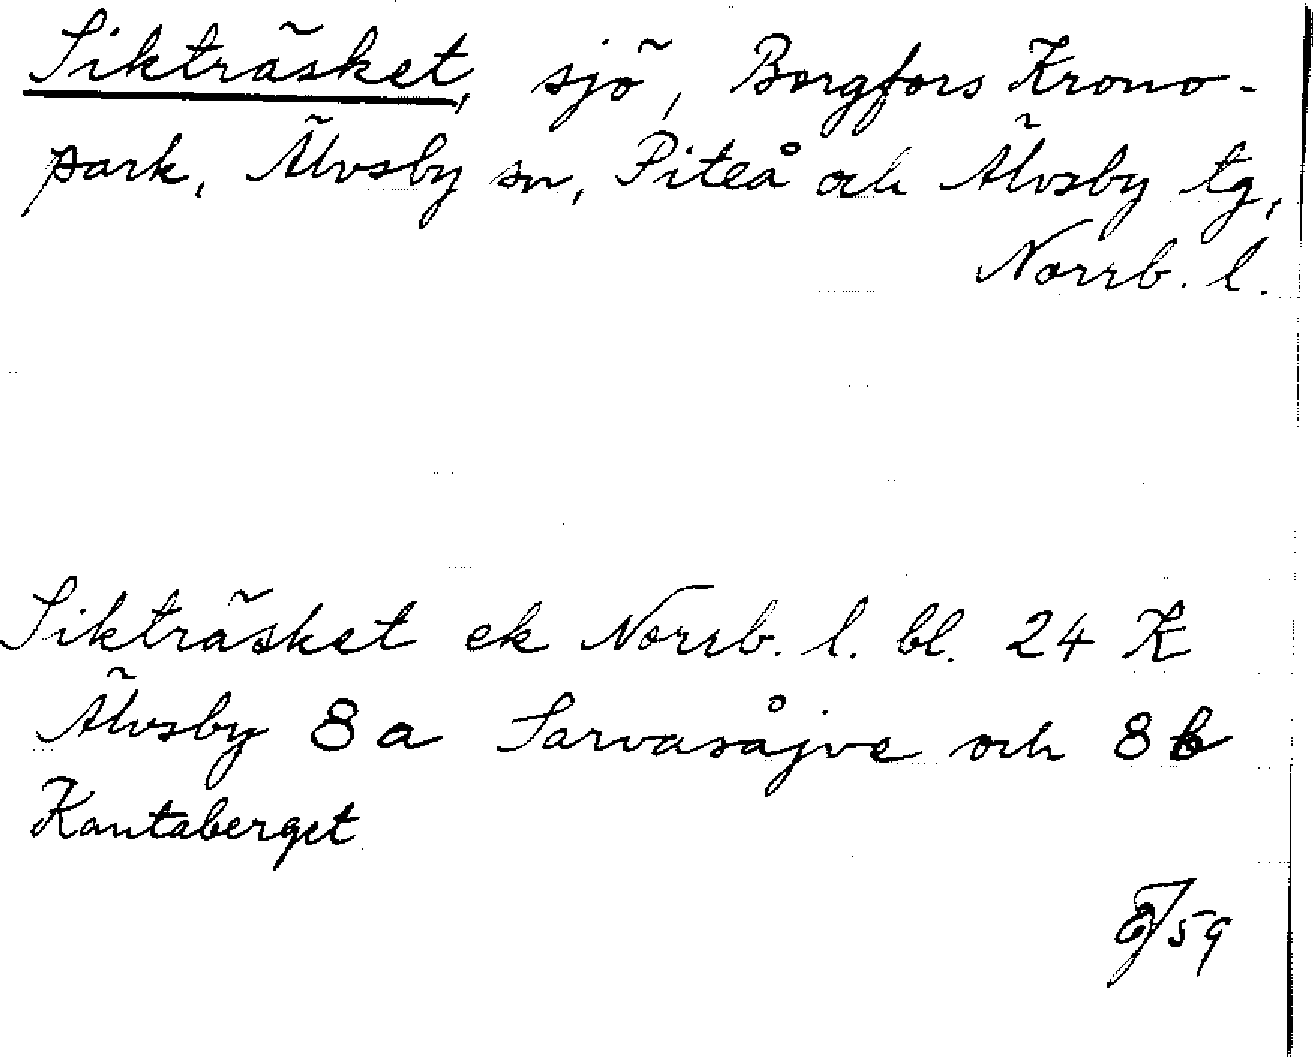 Sikträsket, sjö, Borgfors Krono-
park, Älvsby sn, Piteå och Älvsby tg,
Norrb. l.
Sikträsket ek Norrb. l. bl. 24 K
Älvsby 8a Sarvasåjve och 8b
Kantaberget
/59